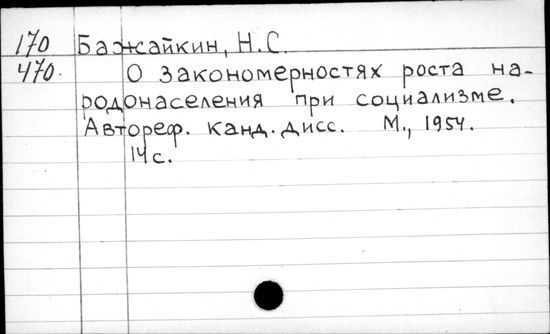 170 Бажайкин, Н.С.
470. О закономерностях роста на-
родонаселения при социализме.
Автореф. канд. дисс. М., 1954.
14 с.